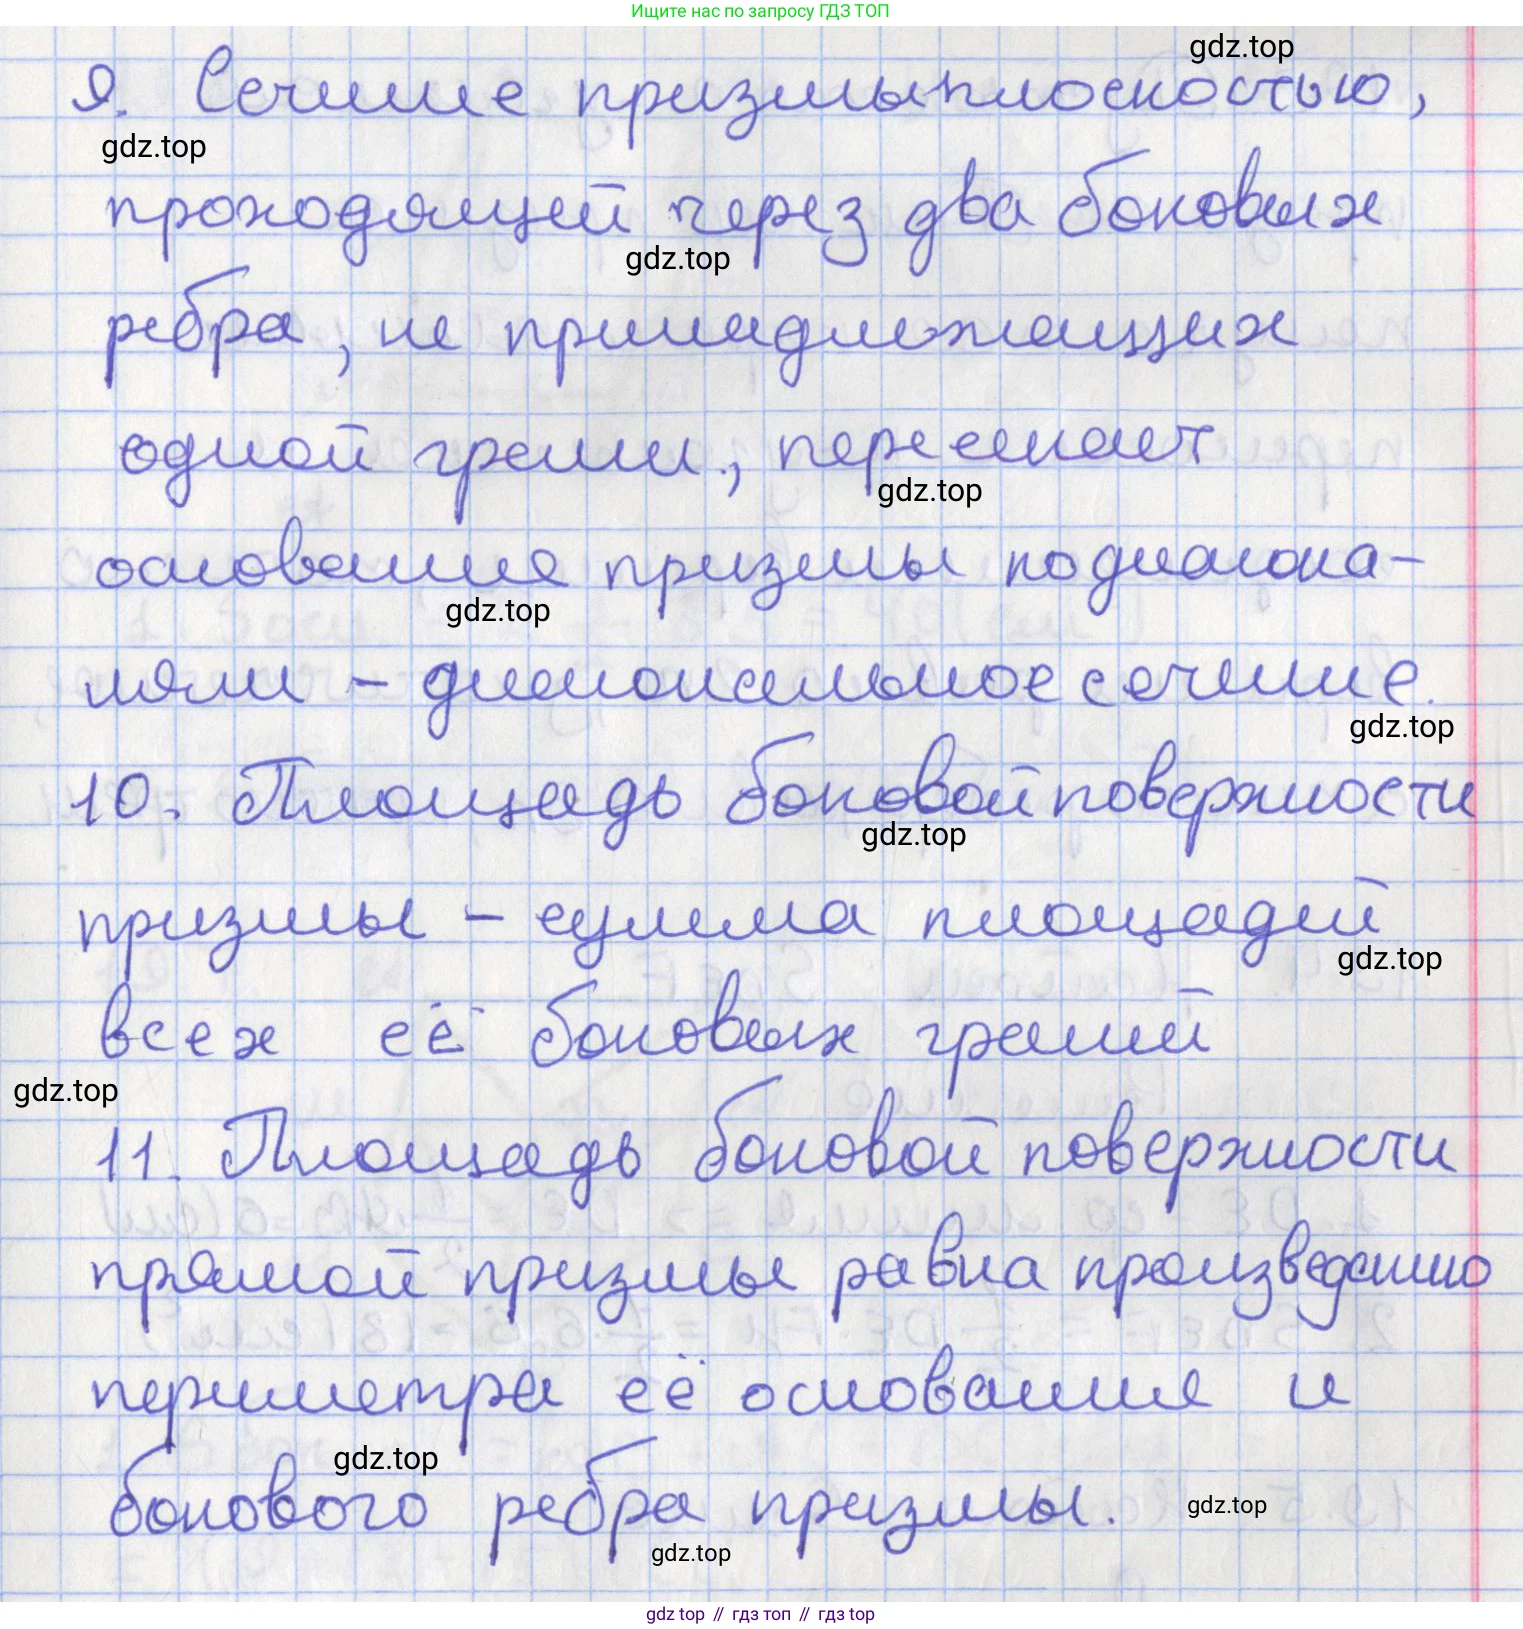 Ищите нас по запросу ГДЗ ТОП
gdz.top
9. Сечение призмы плоскостью,
gdz.top
проходящей через два боковых
gdz.top
ребра, не принадлежащих
одной грани, пересекает
gdz.top
основание призмы по диагона-
gdz.top
лями - диагональное сечение.
gdz.top
10. Площадь боковой поверхности
gdz.top
призмы - сумма площадей
gdz.top
всех её боковых граней
gdz.top
11. Площадь боковой поверхности
прямой призмы равна произведению
периметра её основания и
gdz.top
бокового ребра призмы.
gdz.top
gdz.top
gdz top // гдз топ // гдз top